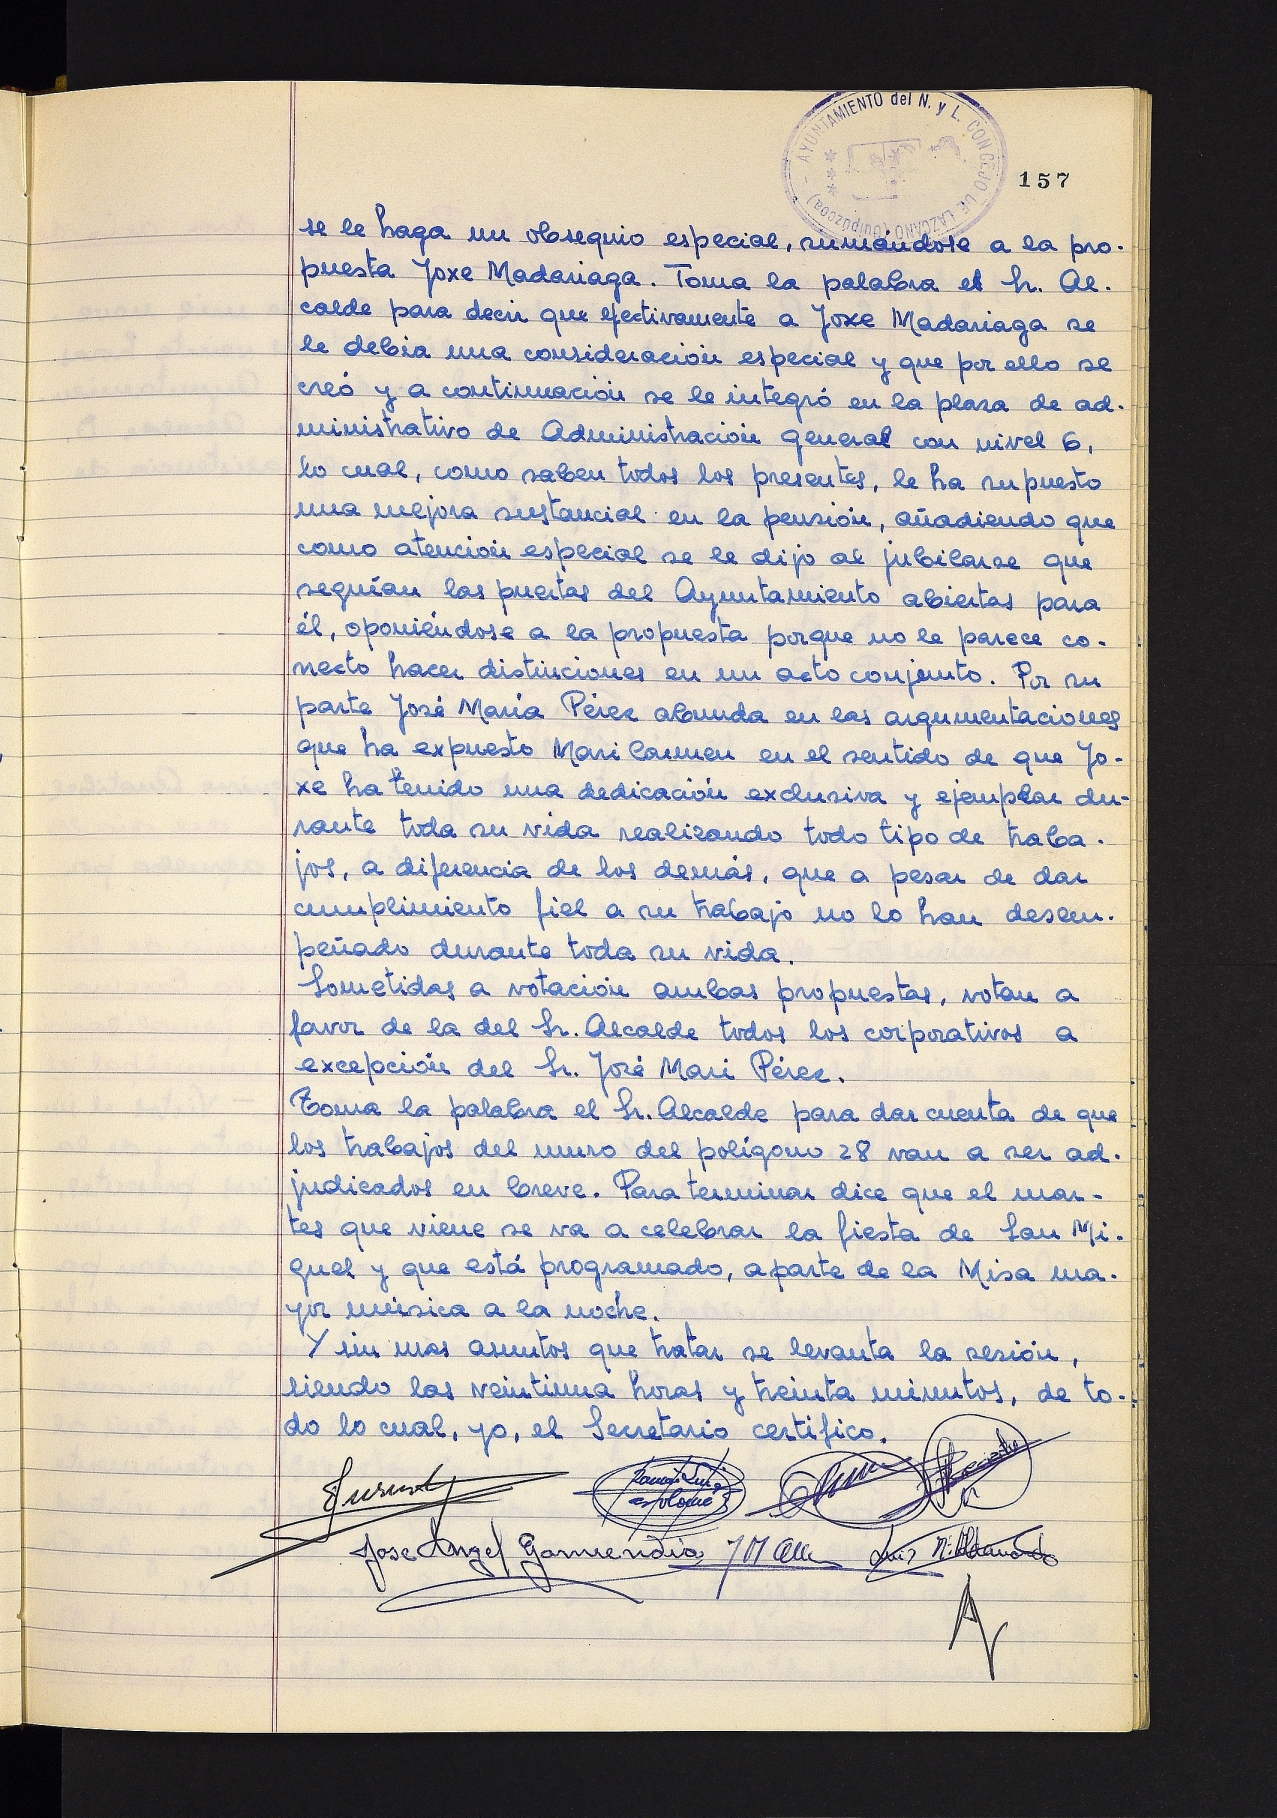 AYUNTAMIENTO del N. y L. CONCEJO DE LAZCANO (Guipúzcoa)
157
se le haga un obsequio especial, sumándose a la pro-
puesta Joxe Madariaga. Toma la palabra el Sr. Al-
calde para decir que efectivamente a Joxe Madariaga se
le debia una consideración especial y que por ello se
creó y a continuación se le integró en la plaza de ad-
ministrativo de Administración general con nivel 6,
lo cual, como saben todos los presentes, le ha supuesto
una mejora sustancial en la pensión, añadiendo que
como atención especial se le dijo al jubilarse que
seguían las puertas del Ayuntamiento abiertas para
él, oponiéndose a la propuesta porque no le parece co-
rrecto hacer distinciones en un acto conjunto. Por su
parte José María Pérez abunda en las argumentaciones
que ha expuesto Mari Carmen en el sentido de que Jo-
xe ha tenido una dedicación exclusiva y ejemplar du-
rante toda su vida realizando todo tipo de traba-
jos, a diferencia de los demás, que a pesar de dar
cumplimiento fiel a su trabajo no lo han desem-
peñado durante toda su vida.
Sometidas a votación ambas propuestas, votan a
favor de la del Sr. Alcalde todos los corporativos a
excepción del Sr. José Mari Pérez.
Toma la palabra el Sr. Alcalde para dar cuenta de que
los trabajos del muro del polígono 28 van a ser ad-
judicados en breve. Para terminar dice que el mar-
tes que viene se va a celebrar la fiesta de San Mi-
guel y que está programado, aparte de la Misa ma-
yor música a la noche.
Y sin mas asuntos que tratar se levanta la sesión,
siendo las veintiuna horas y treinta minutos, de to-
do lo cual, yo, el Secretario certifico.
Jose Angel Garmendia